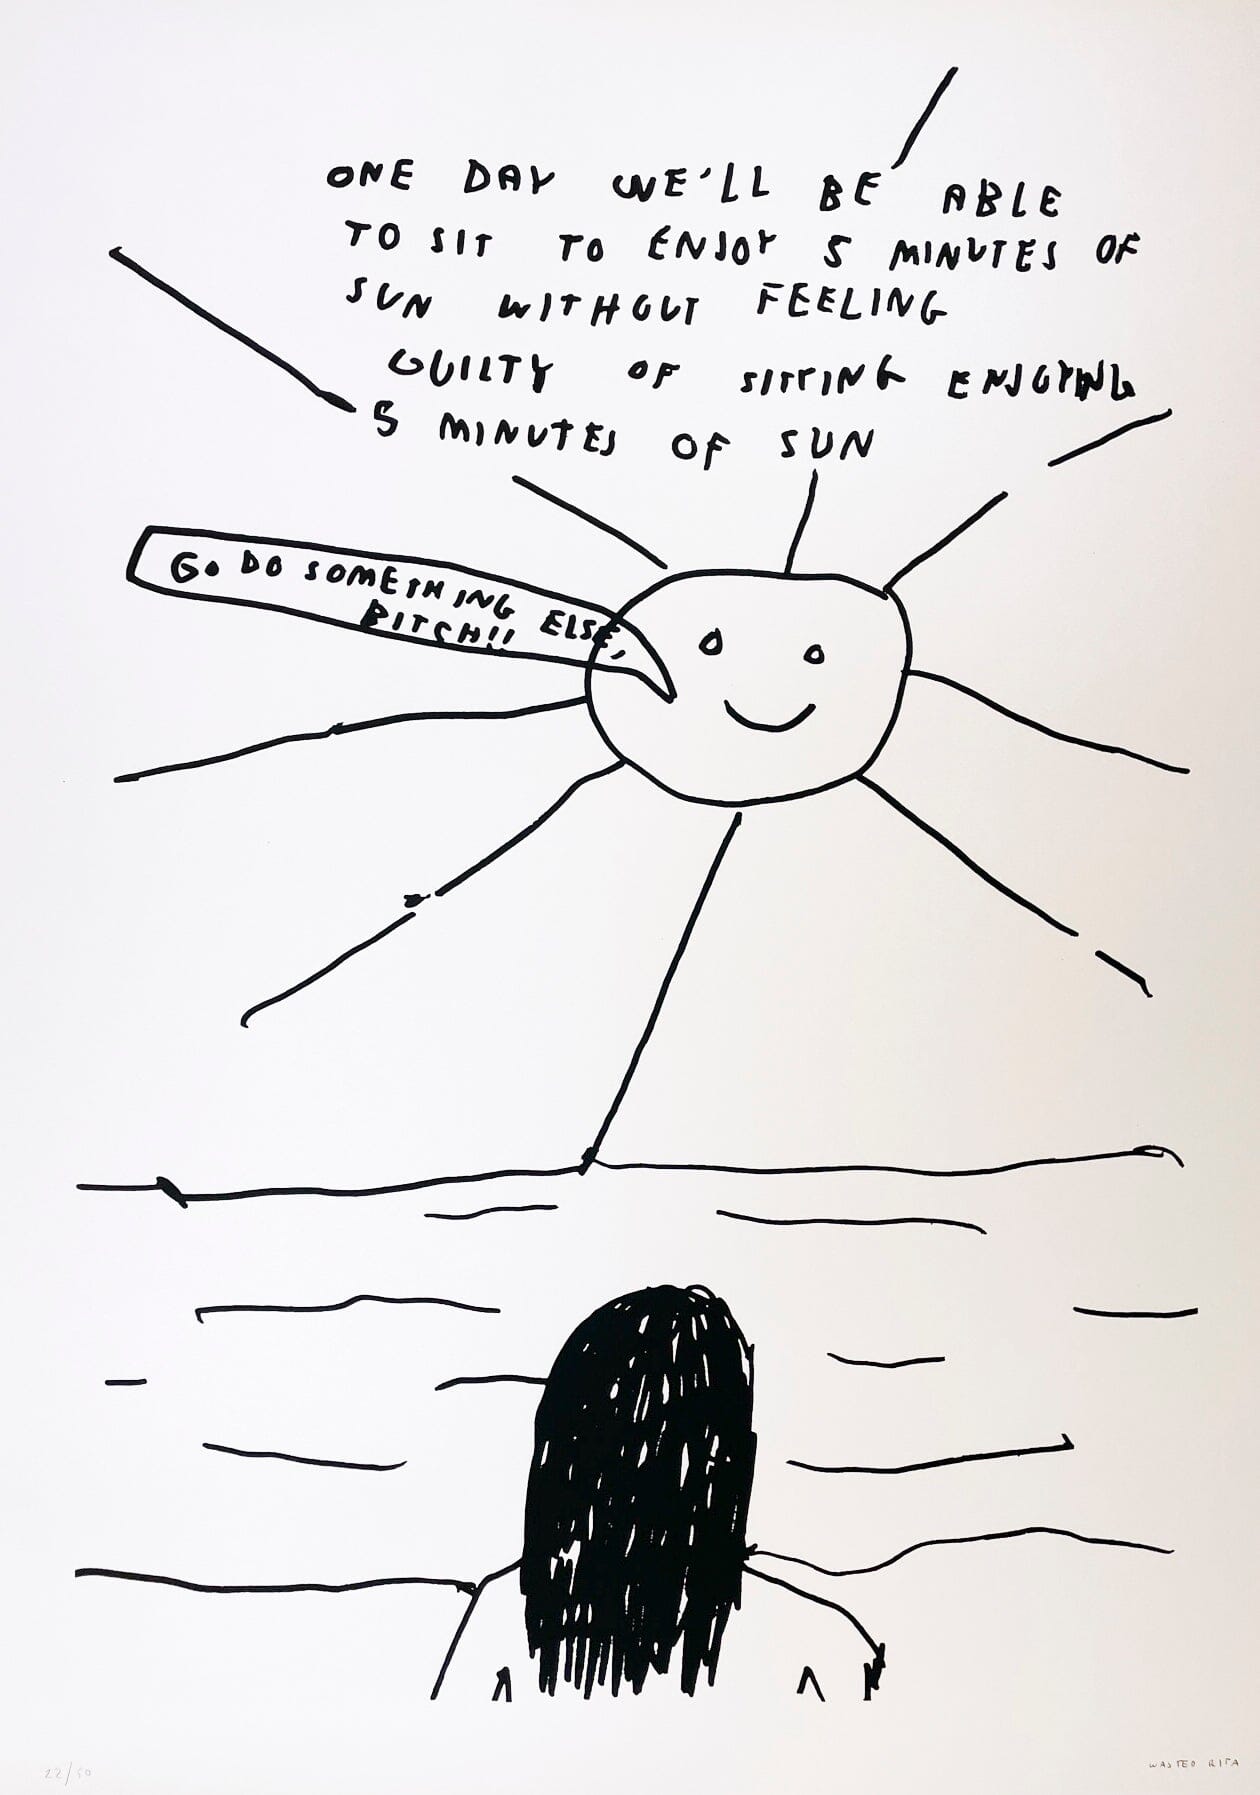 ONE DAY WE'LL BE ABLE
TO SIT TO ENJOY 5 MINUTES OF
SUN WITHOUT FEELING
GUILTY OF SITTING ENJOYING
5 MINUTES OF SUN
GO DO SOMETHING ELSE,
BITCH!!
22/50
WASTED RITA